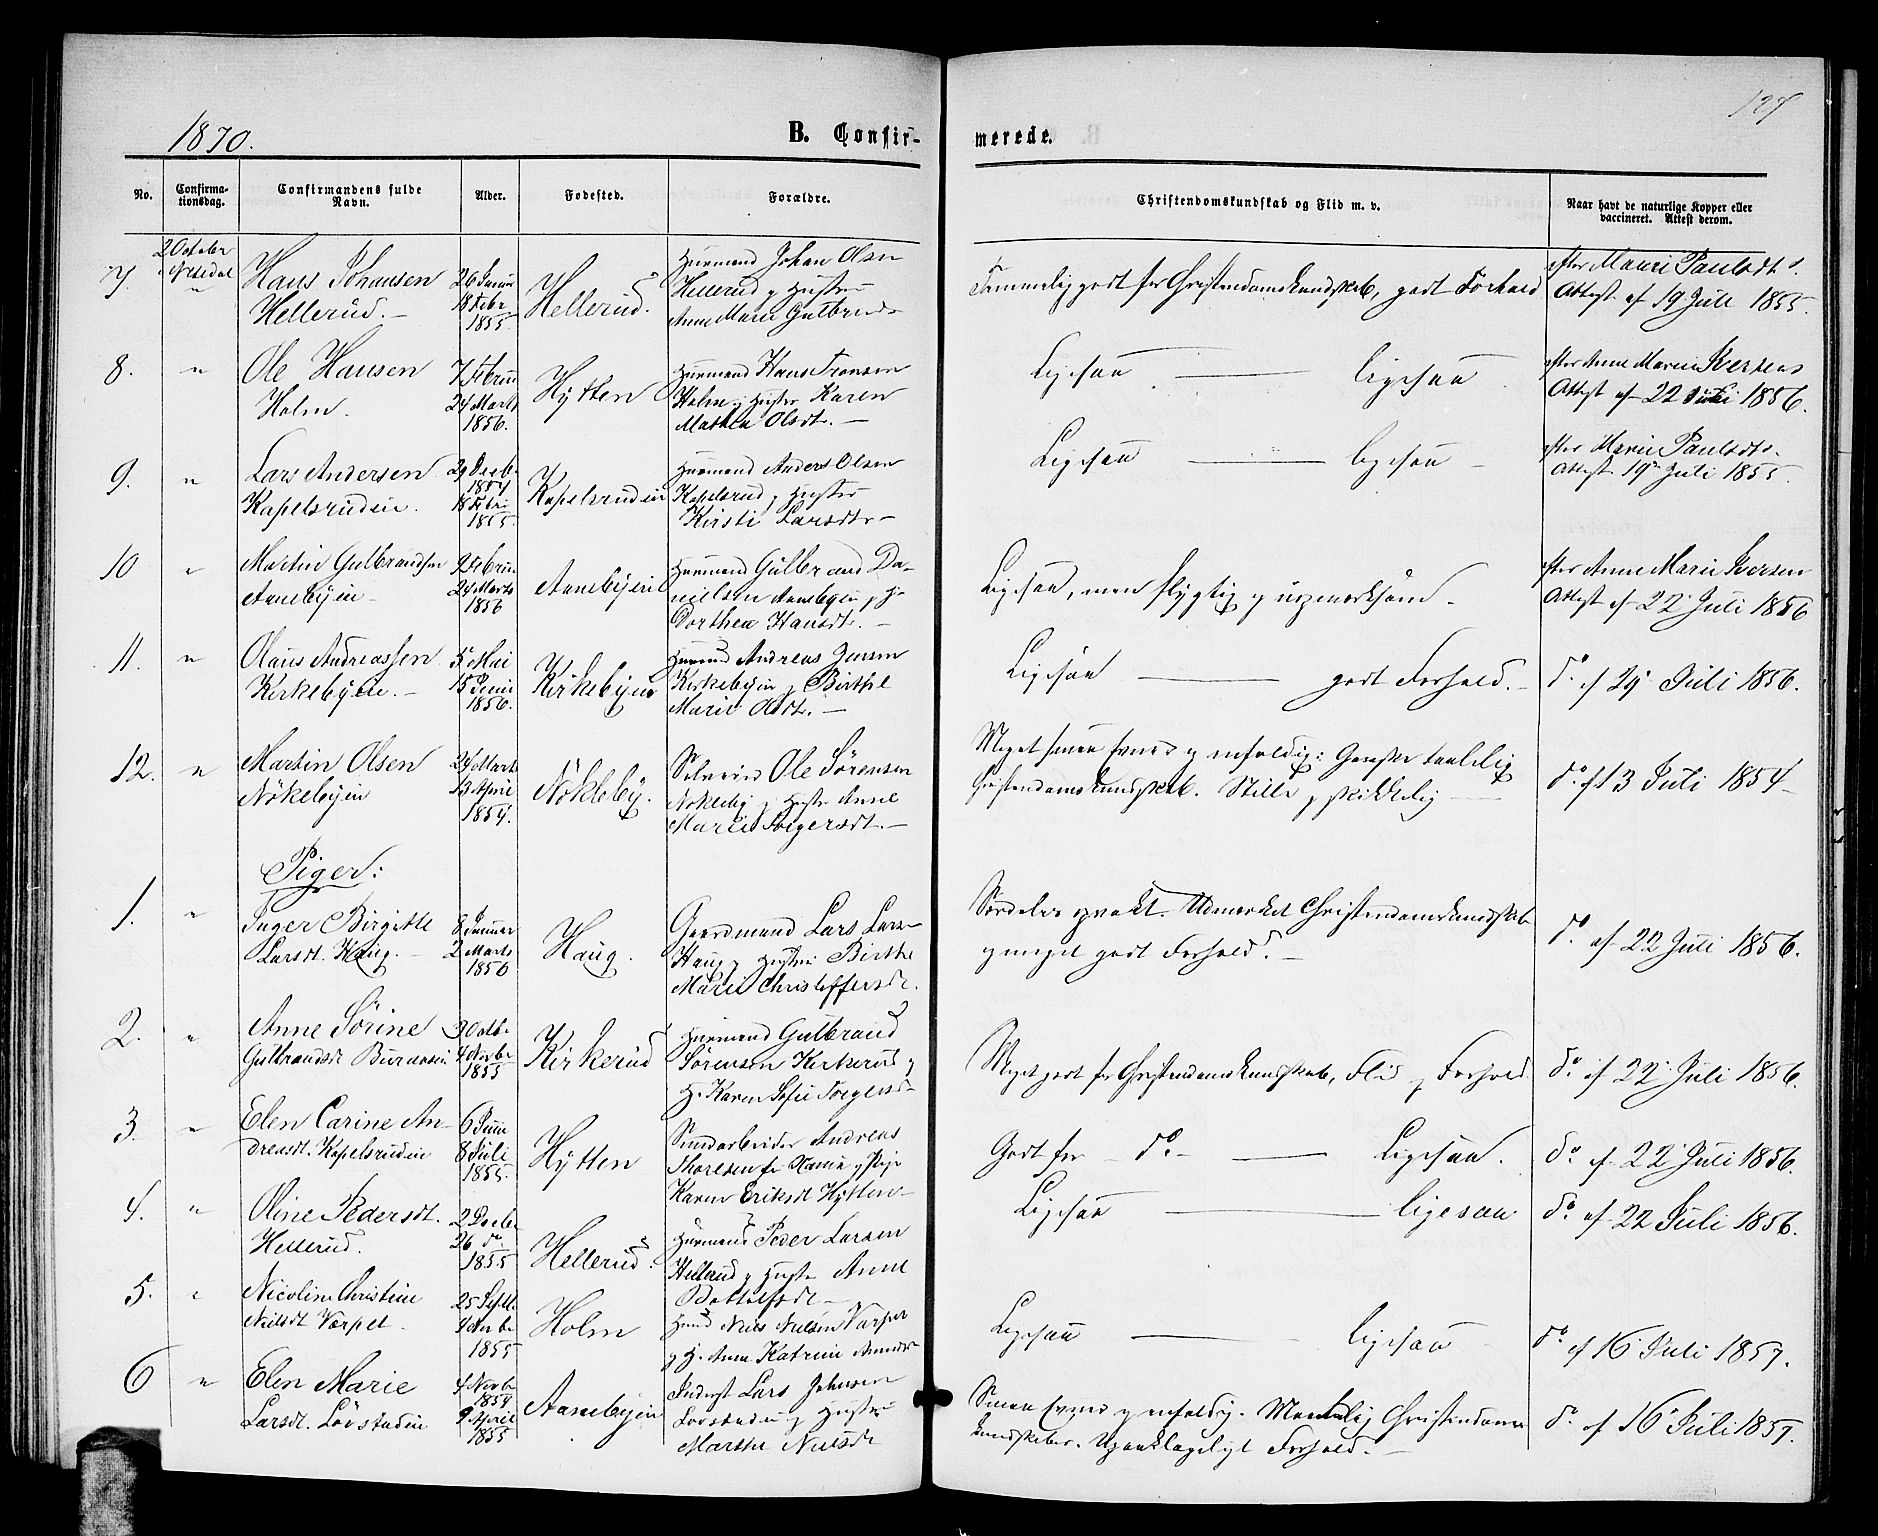 127
1870.
B. Confir-
merede.
No.
Confirma-
tionsdag.
Confirmandens fulde
Navn.
Alder.
Fødested.
Forældre.
Christendomskundskab og Flid m. v.
Naar havt de naturlige Kopper eller
vaccineret. Attest derom.
7.
2 October
"
Hans Johansen
Hellerud.
26 Januar
18 Febr
1855
Hellerud.
Huusmand Johan Olsen
Hellerud og Hustru
Anne Marie Gulbrandsd
Temmelig godt for Christendomskundskab, godt Forhold
efter Marie Paulsdt
Attest af 19 Juli 1855.
8.
"
Ole Hansen
Holm.
7 Februar
24 Marts
1856.
Hytten
Huusmand Hans
Holm og Hustru Karen
Mathea Olsdt.
Ligesaa — ligesaa
efter Anne Marie Iversens
Attest af 22 Juli 1856.
9.
"
Lars Andersen
Kapelsruden.
29 Decbr
1854
18 Febr
1855.
Kapelsruden
Huusmand Anders Olsen
Kapelsrud og Hustru
Kirsti Larsdtr
Ligesaa — ligesaa
efter Marie Paulsdtr.
Attest 19 Juli 1855.
10
"
Martin Gulbrandsen
Aanebyen
2 Februar
24 Marts
1856
Aanebyen
Huusmand Gulbrand Da-
nielsen Aanebyen og H.
Dorthea Hansdt.
Ligesaa, men flygtig og uopmærksom.
efter Anne Marie Iversen
Attest af 22 Juli 1856
11.
"
Olaus Andreassen
Kirkebyen.
5 Mai
15 Juni
1856.
Kirkebyen
Andreas Jensen
Kirkebyen og Birthe
Marie Olsdt.
Ligesaa — godt Forhold.
do af 29 Juli 1856.
12.
"
Martin Olsen
Nökebyen
24 Marts
13 April
1854.
Nökleby.
Selveier Ole Sörensen
Nökleby og Hustru Anne
Marie Torgersdt.
Meget smaa Evner og enfoldig; Ganske taalelig
Christendomskundskab. Stille og skikkelig
do af 13 Juli 1854
Piger:
1.
"
Inger Birgitte
Larsdt. Haug.
8 Januar
2 Marts
1856
Haug.
Gaardmand Lars Larsen
Haug og Hustru Birthe
Marie Christoffersdt.
Særdeles opvakt. Udmærket Christendomskundskab
og meget godt Forhold.
do af 22 Juli 1856.
2.
"
Anne Sörine
Gulbrandsdt
3 Octbr
4 Novbr
1855
Kirkerud
Huusmand Gulbrand
Sörensen Kirkerud og
H. Karen Sofie Torgersdt
Meget godt for Christendomskundskab, Flid og Forhold.
do af 22 Juli 1856.
3.
"
Elen Carine An-
dreasdt. Kapelsruden
6 Juni
8 Juli
1855.
Hytten
Andreas
Thoresen og Pige
Karen Eriksdt Hytten
Godt for do — Ligesaa.
do af 22 Juli 1856.
4.
"
Oline Pedersdt.
Hellerud.
2 Decbr
26 do
1855
Hellerud.
Huusmand Peder Larsen
Hellerud og Hustru Anne
Ligesaa — ligesaa
do af 22 Juli 1856.
5.
"
Nicoline Christine
Nielsdt Værpet.
25 Septbr
4 Novbr
1855
Holm
Niels Nielsen
og H. Anne Katrine
Ligesaa — ligesaa
do af 16 Juli 1857.
6
"
Elen Marie
Larsdt. Lövstaden
4 Novbr
1854
9 April
1855
Aanebyen
Inderst Lars Johnsen
Lövstaden og Hustru
Marthe Nielsdt
Smaa Evner og enfoldig. Maadelig Christendoms-
kundskaber. Upaaklageligt Forhold.
do af 16 Juli 1857.